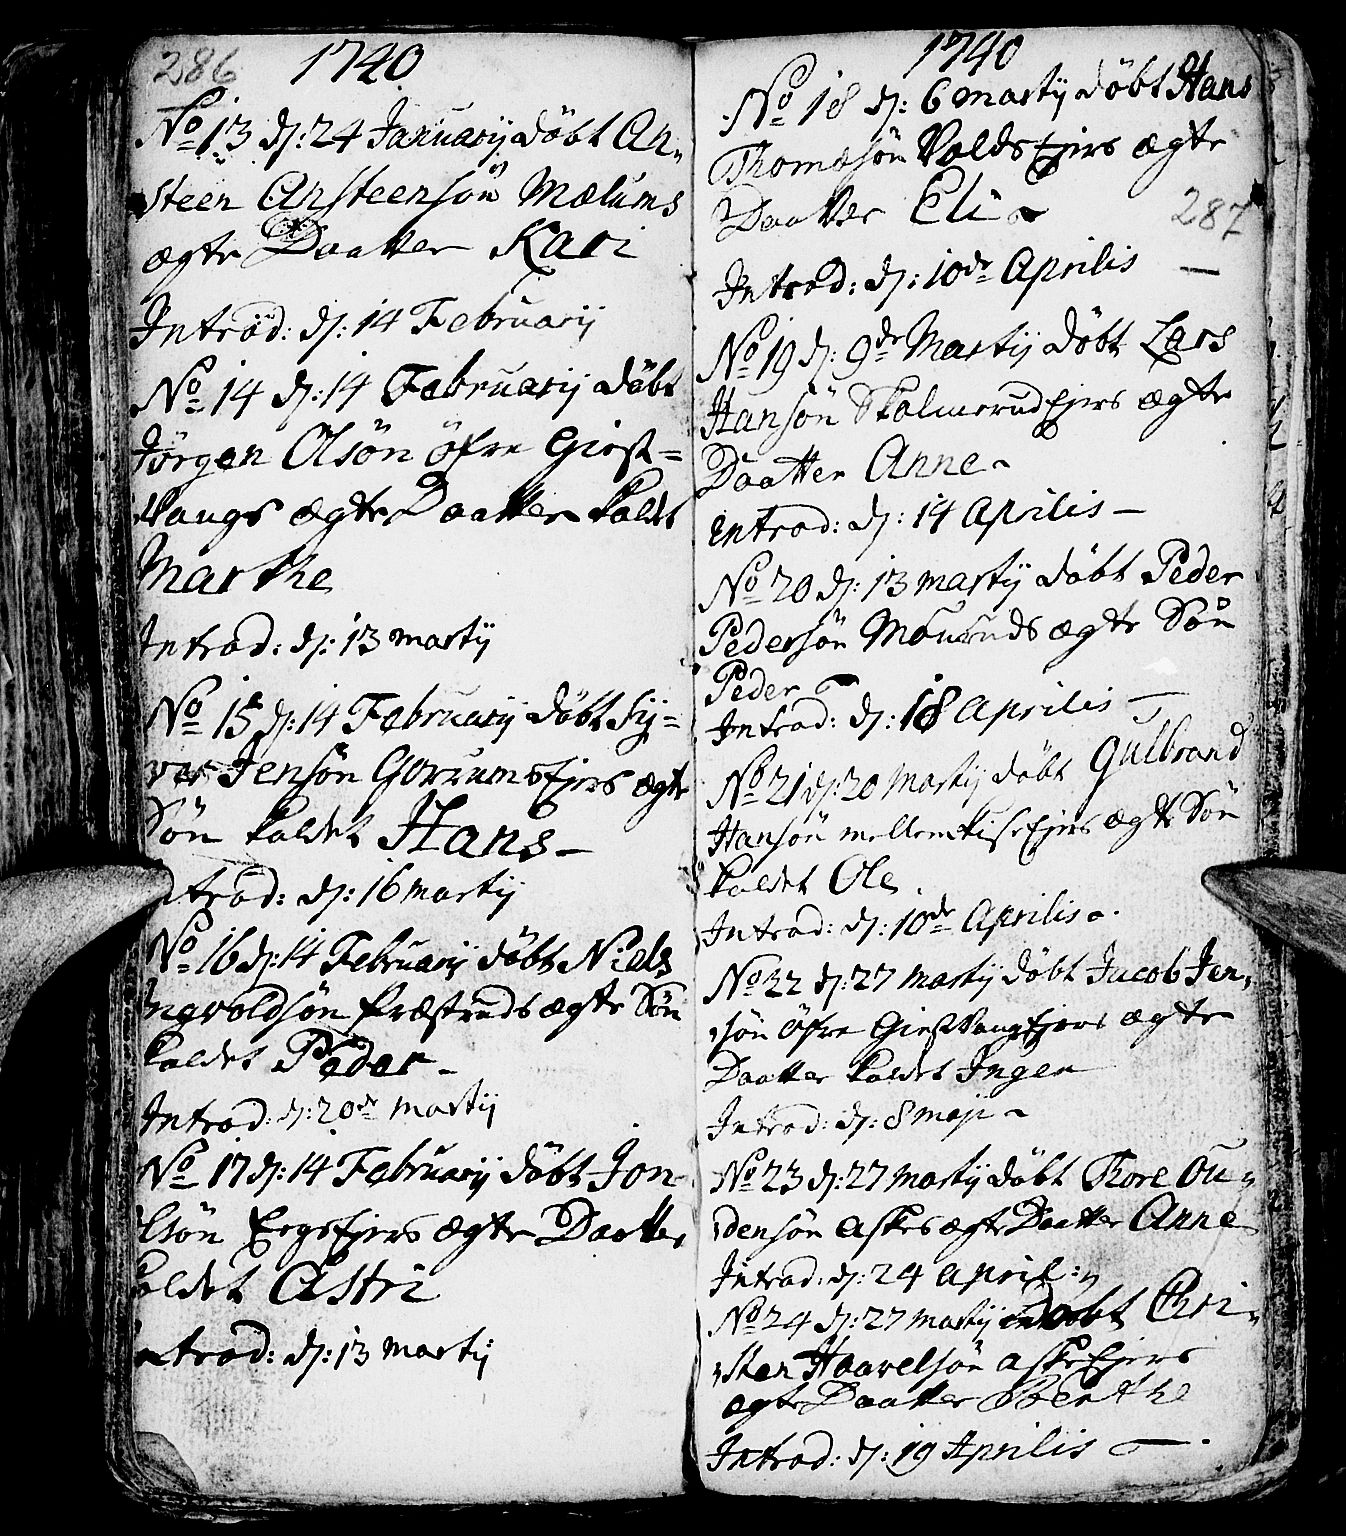 286 1740
No 13 d: 24 Januarij döbt An-
steen Ansteensön Mælums
ægte Daatter Kari
Introd: d: 14 Februarij
No 14 d: 14 Februarij döbt
Jörgen Olsön öfre Giest-
vangs ægte Daatter kaldet
Marthe
Introd: d: 13 martij
No 15 d: 14 Februarij döbt Sy-
ver Jensön Gorrumsejers ægte
Sön kaldet Hans
Introd: d: 16 martij
No 16 d: 14 Februarij döbt Niels
Ingvoldsön Præstruds ægte Sön
kaldet Peder
Introd: d: 20de martij
No 17 d: 14 Februarij döbt Jon
Olsön Ergsejers ægte Daatter
kaldet Astri
Introd: d: 13 martij
1740
No 18 d: 6 martij döbt Hans
Thomæsön Voldsejers ægte
Daatter Eli
287
Introd: d: 10de Aprilis
No 19 d: 9de Martij döbt Lars
Hansön Skolmerudejers ægte
Daatter Anne
Introd: d: 14 Aprilis
No 20 d: 13 martij döbt Peder
Pedersön Mouruds ægte Sön
Peder
Introd: d: 18 aprilis
No 21 d: 20 Martij döbt Gulbrand
Hansön mellemkiseejers ægte Sön
kaldet Ole
Introd: d: 10de Aprilis
No 22 d: 27 martij döbt Jacob Jen-
sön Öfre Giestvangejers ægte
Daatter kaldet Inger
Introd: d: 8 maji
No 23 d: 27 martij döbt Thore Ou-
densön Askes ægte Daatter Anne
Introd: d: 24 april:
No 24 d: 27 martij döbt Chri-
sten Haavelsön Askeejers
ægte Daatter Berthe
Introd: d: 19 Aprilis